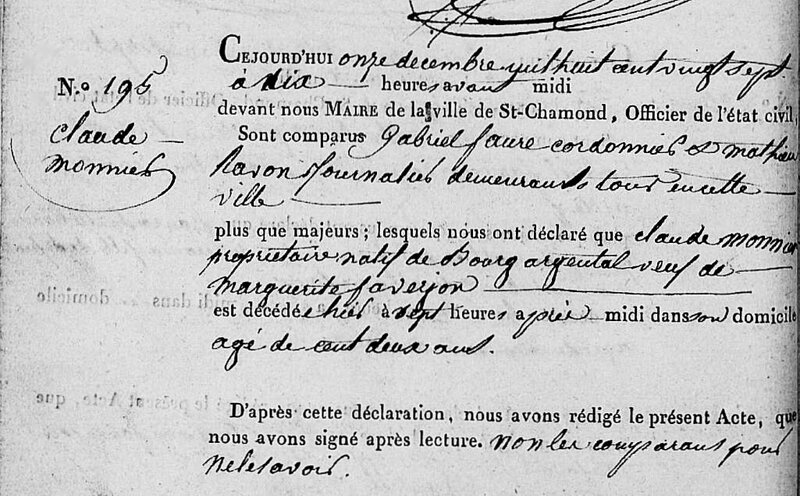 N.º 195
claude
monnier
CEJOURD'HUI onze decembre huit cent vingt sept
à dix heures avant midi
devant nous MAIRE de la ville de St-Chamond, Officier de l'état civil,
Sont comparus gabriel faure cordonnier & mathieu
ravon journalier demeurants tous en cette
ville
plus que majeurs; lesquels nous ont déclaré que claude monnier
propriétaire natif de Bourg argental veuf de
marguerite faverjon
est décédé hier à sept heures après midi dans son domicile
agé de cent deux ans.
D'après cette déclaration, nous avons rédigé le présent Acte, que
nous avons signé après lecture. non les comparans pour
ne le savoir.